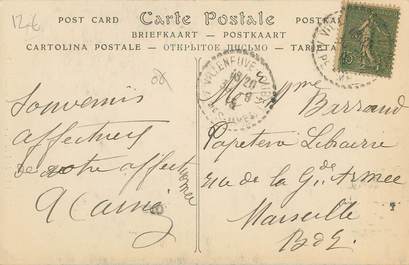 12€
POST CARD Carte Postale POSTKARTE
BRIEFKAART - POSTKAART
CARTOLINA POSTALE - ОТКРЫТОЕ ПИСЬМО - TARJETA
VILLENEUVE
Souvenirs
affectueux
de votre affectionnée
Mme Barrand
Papeterie Librairie
rue de la Gde Armée
Marseille
B d R